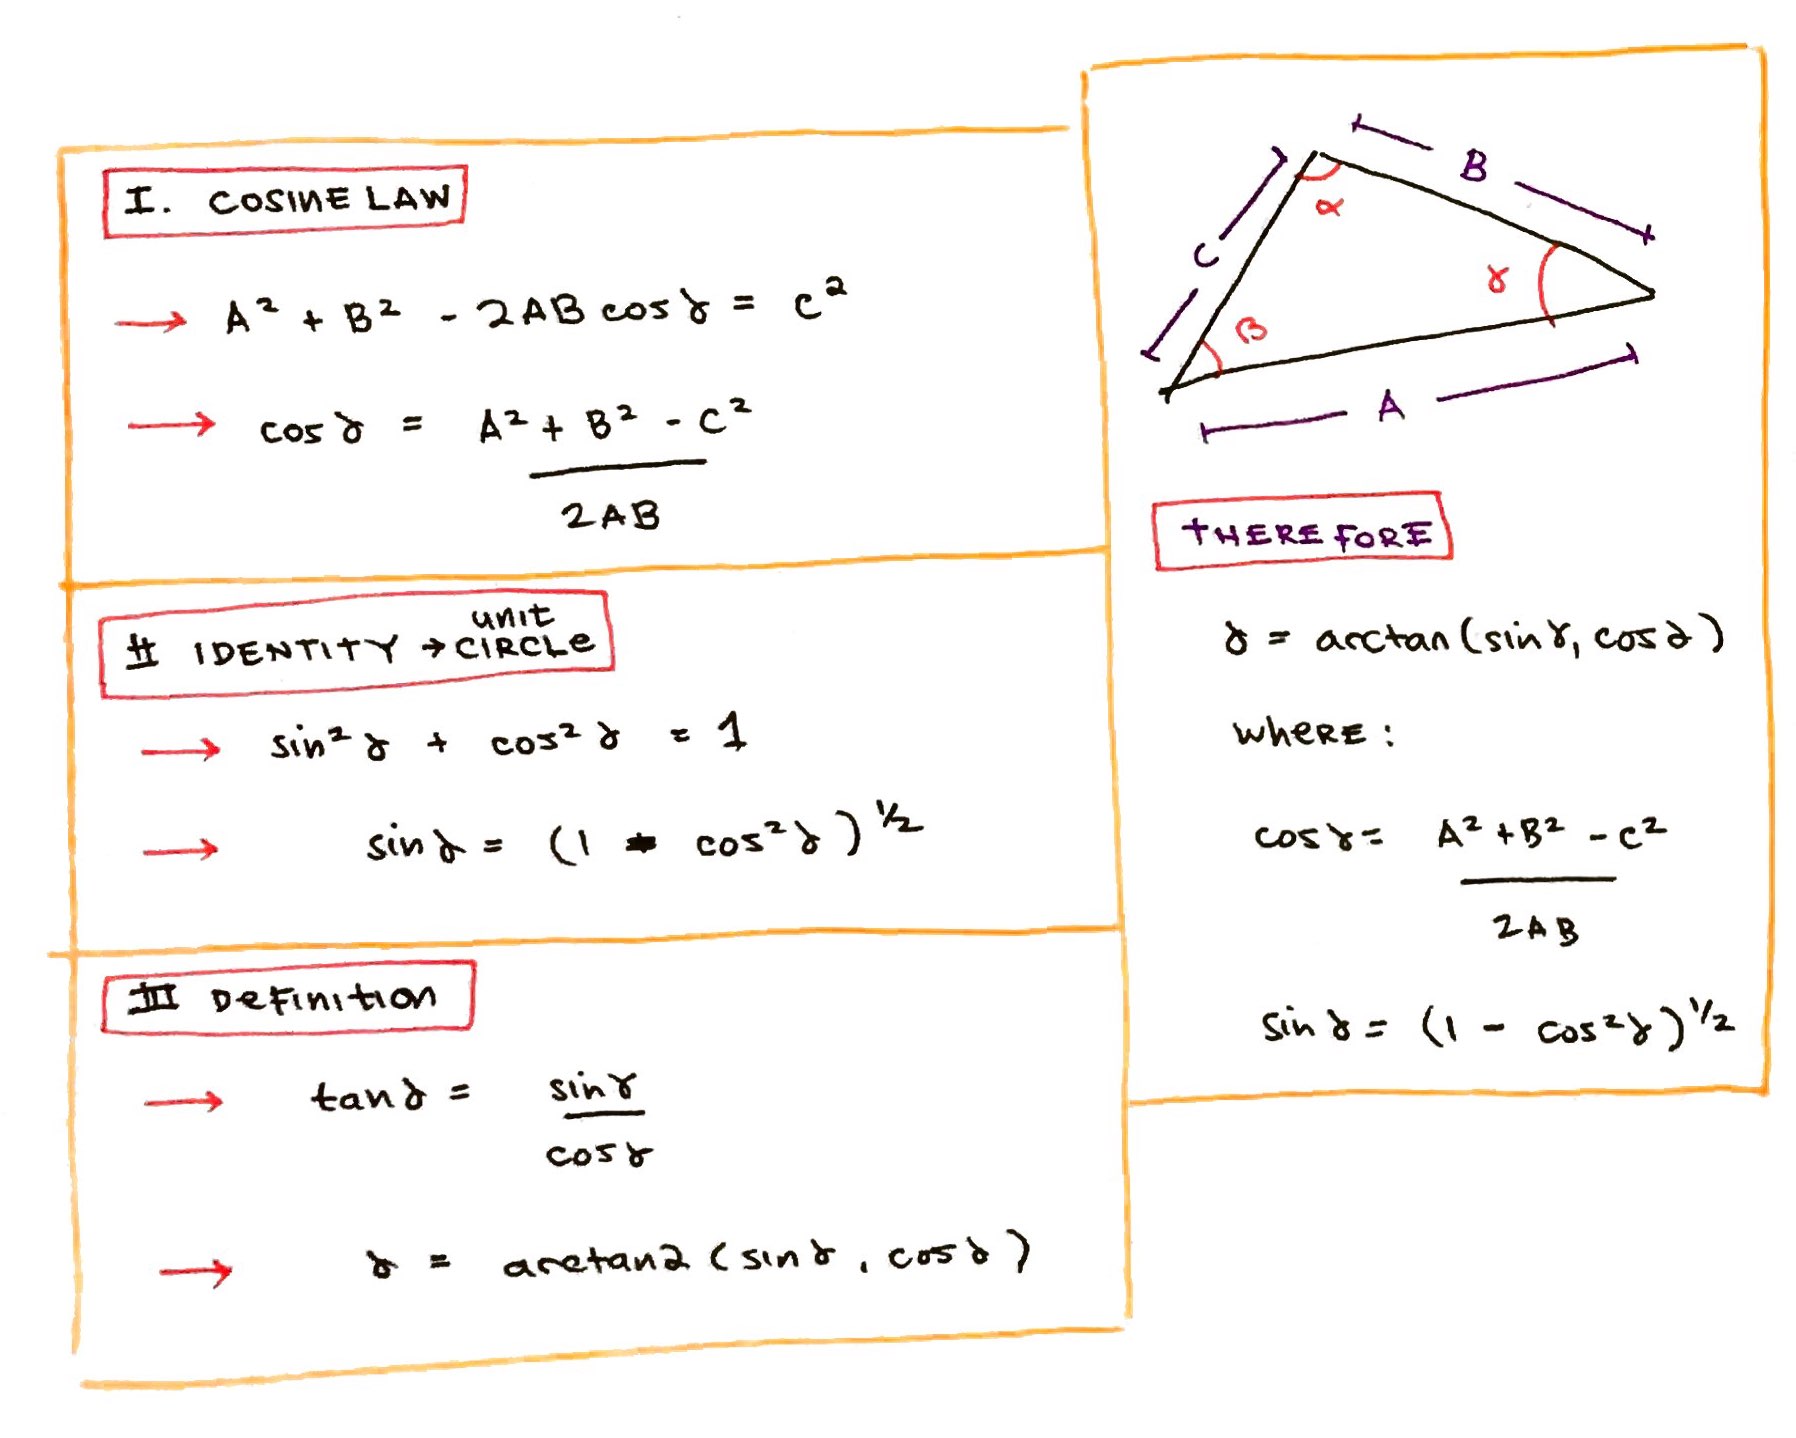 I. COSINE LAW
→ A² + B² - 2AB cos γ = C²
→ cos γ = A² + B² - C²
2AB
II IDENTITY → unit CIRCLE
→ sin² γ + cos² γ = 1
→ sin γ = (1 - cos² γ)^1/2
III Definition
→ tan γ = sin γ
cos γ
→ γ = arctan2 (sin γ, cos γ)
B
C
α
γ
β
A
THEREFORE
γ = arctan (sin γ, cos γ)
WHERE:
cos γ = A² + B² - C²
2AB
sin γ = (1 - cos² γ)^1/2